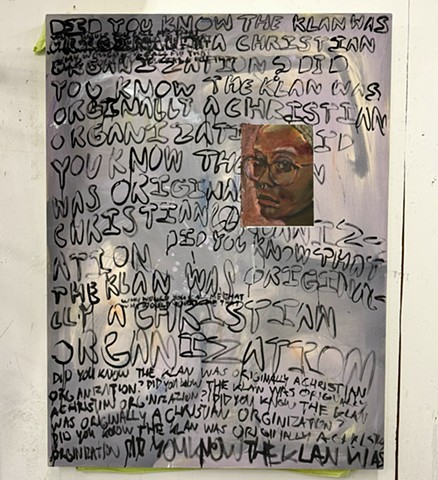 DID YOU KNOW THE KLAN WAS
A CHRISTIAN
ORGANIZATION? DID
YOU KNOW THE KLAN WAS
ORGINALLY A CHRISTIAN
ORGANIZATI ID
YOU KNOW THE N
WAS ORIGINA
CHRISTIAN ORGANIZ-
DID YOU KNOW THAT
ATION
THE KLAN WAS ORIGINA-
LLY A CHRISTIAN
ORGANIZATION
DID YOU KNOW THE KLAN WAS ORIGINALLY A CHRISTIAN
ORGANIZATION? DID YOU KNOW THE KLAN WAS ORIGINALLY
A CHRISTIAN ORGINIZATION? DID YOU KNOW THE KLAN
WAS ORIGINALLY A CHRISTIAN ORGINIZATION?
DID YOU KNOW THE KLAN WAS ORIGINALLY A CHRISTIAN
ORGINIZATION DID YOU KNOW THE KLAN WAS